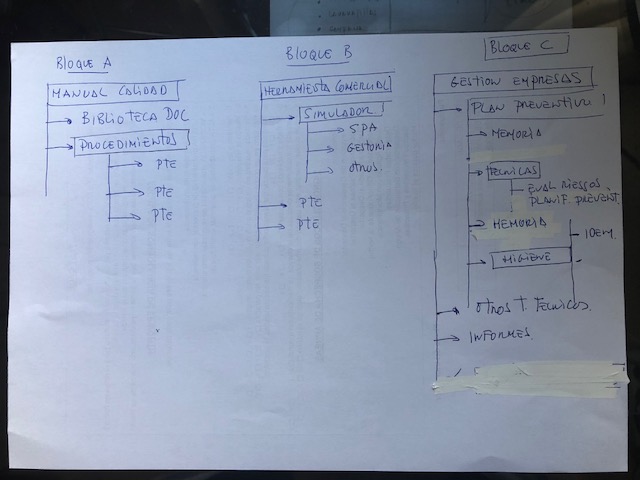 Bloque A
MANUAL CALIDAD
BIBLIOTECA DOC
PROCEDIMIENTOS
PTE
PTE
PTE
Bloque B
HERRAMIENTA COMERCIAL
SIMULADOR
SPA
GESTORIA
OTROS
PTE
PTE
Bloque C
GESTION EMPRESAS
PLAN PREVENTIVO
MEMORIA
TECNICAS
EVAL RIESGOS
PLANIF. PREVENT.
MEMORIA
HIGIENE
IDEM.
OTROS T TECNICOS
INFORMES